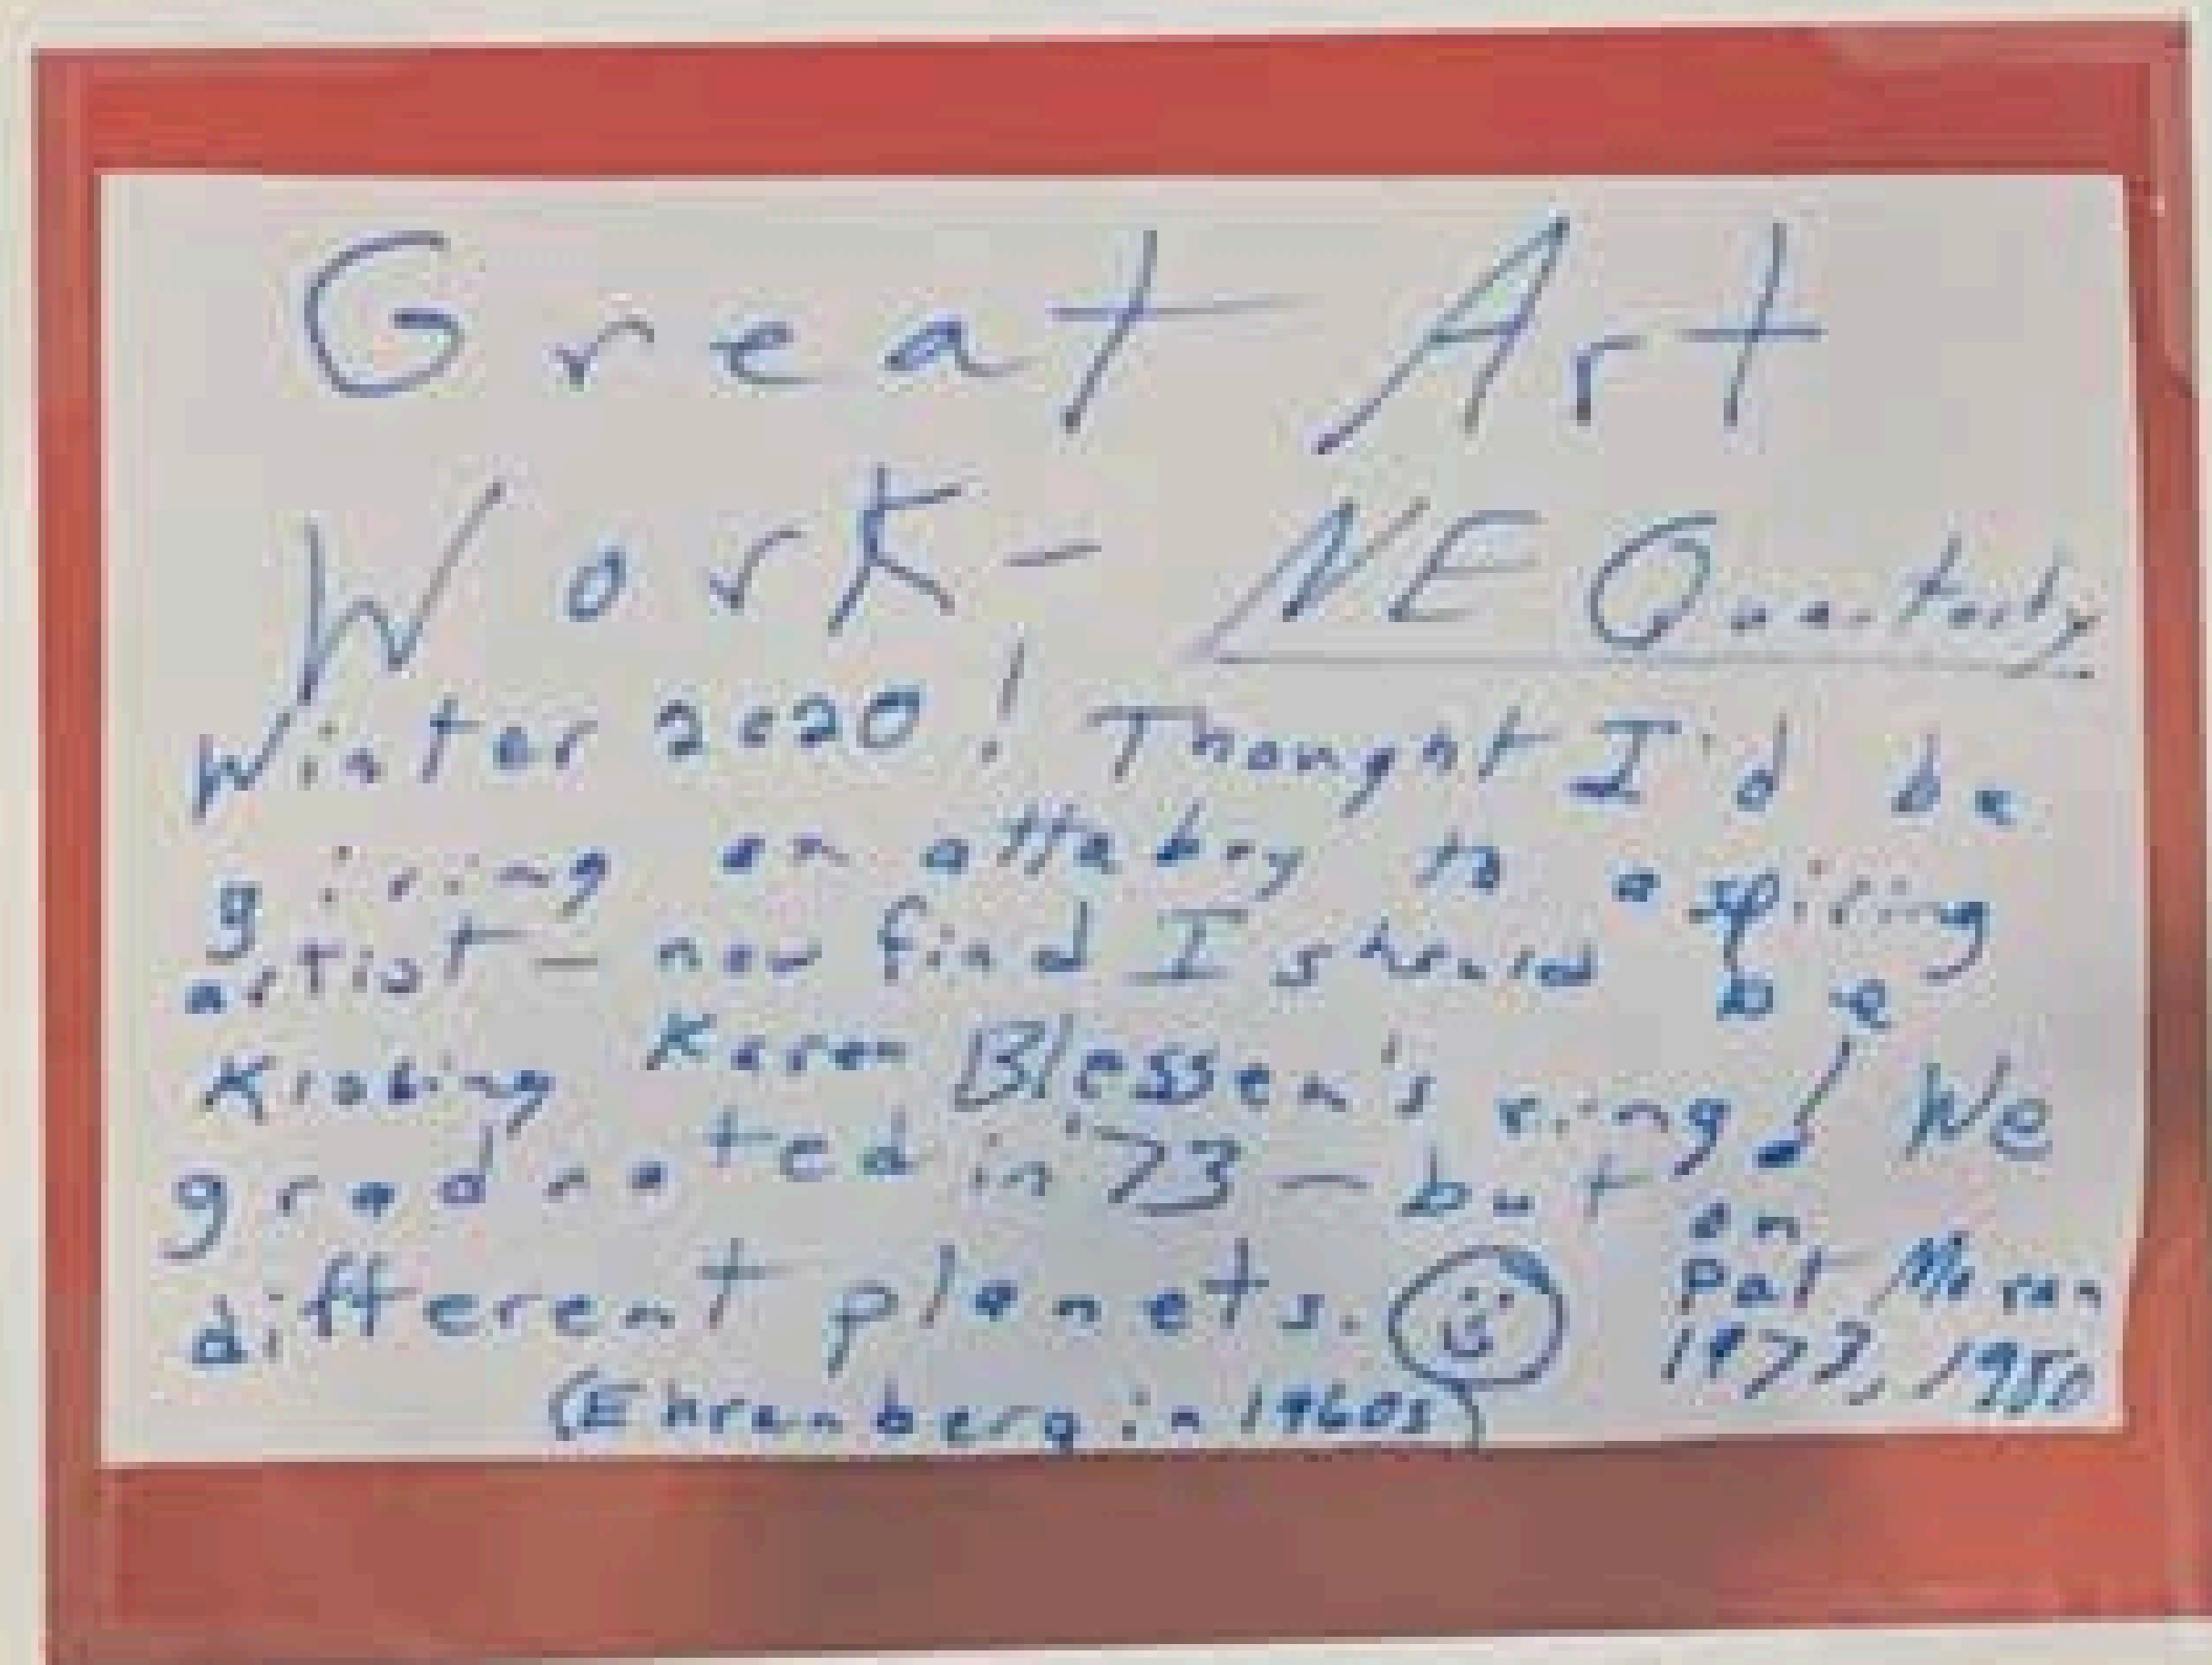 Great Art
Work - NE Quarterly
Winter 2020! Thought I'd be
giving an attaboy to aspiring
artist — now find I should be
Kissing Karen Blessen's ring! We
graduated in '73 — but on
different planets. Pat Moran
1973, 1980
(Ehrenberg in 1960s)